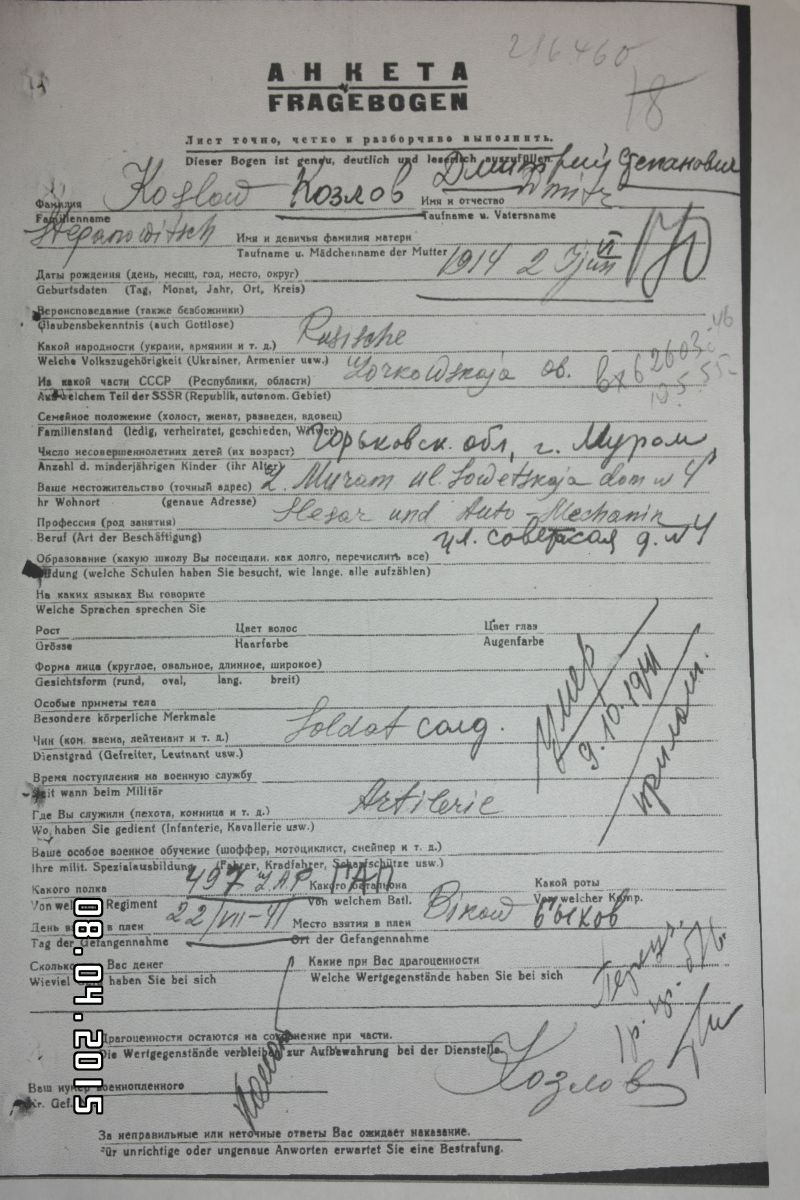 216460
18
АНКЕТА
FRAGEBOGEN
Лист точно, четко и разборчиво выполнить.
Dieser Bogen ist genau, deutlich und leserlich auszufüllen.
Дмитрий Степанович
Фамилия Koslow Козлов Имя и отчество Dmitr
Familienname Taufname u. Vatersname
Stepanowitsch Имя и девичья фамилия матери
Taufname u. Mädchenname der Mutter
Даты рождения (день, месяц, год, место, округ) 1914 2 Juni VI
Geburtsdaten (Tag, Monat, Jahr, Ort, Kreis)
Вероисповедание (также безбожники)
Glaubensbekenntnis (auch Gottlose)
Какой народности (украин, армянин и т. д.) Rusische
Welche Volkszugehörigkeit (Ukrainer, Armenier usw.)
Из какой части СССР (Республики, области) Gorkowskaja ob.
Aus welchem Teil der SSSR (Republik, autonom. Gebiet)
вх 6 2603
Семейное положение (холост, женат, разведен, вдовец)
Familienstand (ledig, verheiratet, geschieden, Witwer)
Число несовершеннолетних детей (их возраст) Горьковск. обл, г. Муром
Anzahl d. minderjährigen Kinder (ihr Alter)
Ваше местожительство (точный адрес) g. Muram ul. Sowetskaja dom N 4
hr Wohnort (genaue Adresse)
Профессия (род занятия) Slesar und Auto-Mechanik
Beruf (Art der Beschäftigung) ул. советская д. N 4
Образование (какую школу Вы посещали. как долго, перечислить все)
dung (welche Schulen haben Sie besucht, wie lange. alle aufzählen)
На каких языках Вы говорите
Welche Sprachen sprechen Sie
Рост Цвет волос Цвет глаз
Grösse Haarfarbe Augenfarbe
Форма лица (круглое, овальное, длинное, широкое)
Gesichtsform (rund, oval, lang. breit)
Умер
9.10.1941
Особые приметы тела
Besondere körperliche Merkmale
Чин (ком. звена, лейтенант и т. д.) Soldat солд.
Dienstgrad (Gefreiter, Leutnant usw.)
Время поступления на военную службу
eit wann beim Militär
Где Вы служили (пехота, конница и т. д.) Artilerie
Wo haben Sie gedient (Infanterie, Kavallerie usw.)
Ваше особое военное обучение (шоффер, мотоциклист, снейпер и т. д.)
Ihre milit. Spezialausbildung (Fahrer, Kradfahrer, Scharfschütze usw.)
Какого полка 497 ГАП Какого батальона Какой роты
Von welchem Regiment Von welchem Batl. Von welcher Komp.
День взятия в плен 22/VII-41 Место взятия в плен Bikow Быхов
Tag der Gefangennahme Ort der Gefangennahme
Сколько Вас денег Какие при Вас драгоценности
Wieviel haben Sie bei sich Welche Wertgegenstände haben Sie bei sich
Драгоценности остаются на сохранение при части.
Die Wertgegenstände verbleiben zur Aufbewahrung bei der Dienstelle.
Козлов
Ваш нумер военнопленного
Nr. Gef
За неправильные или неточные ответы Вас ожидает наказание.
Für unrichtige oder ungenaue Anworten erwartet Sie eine Bestrafung.
08.04.2015